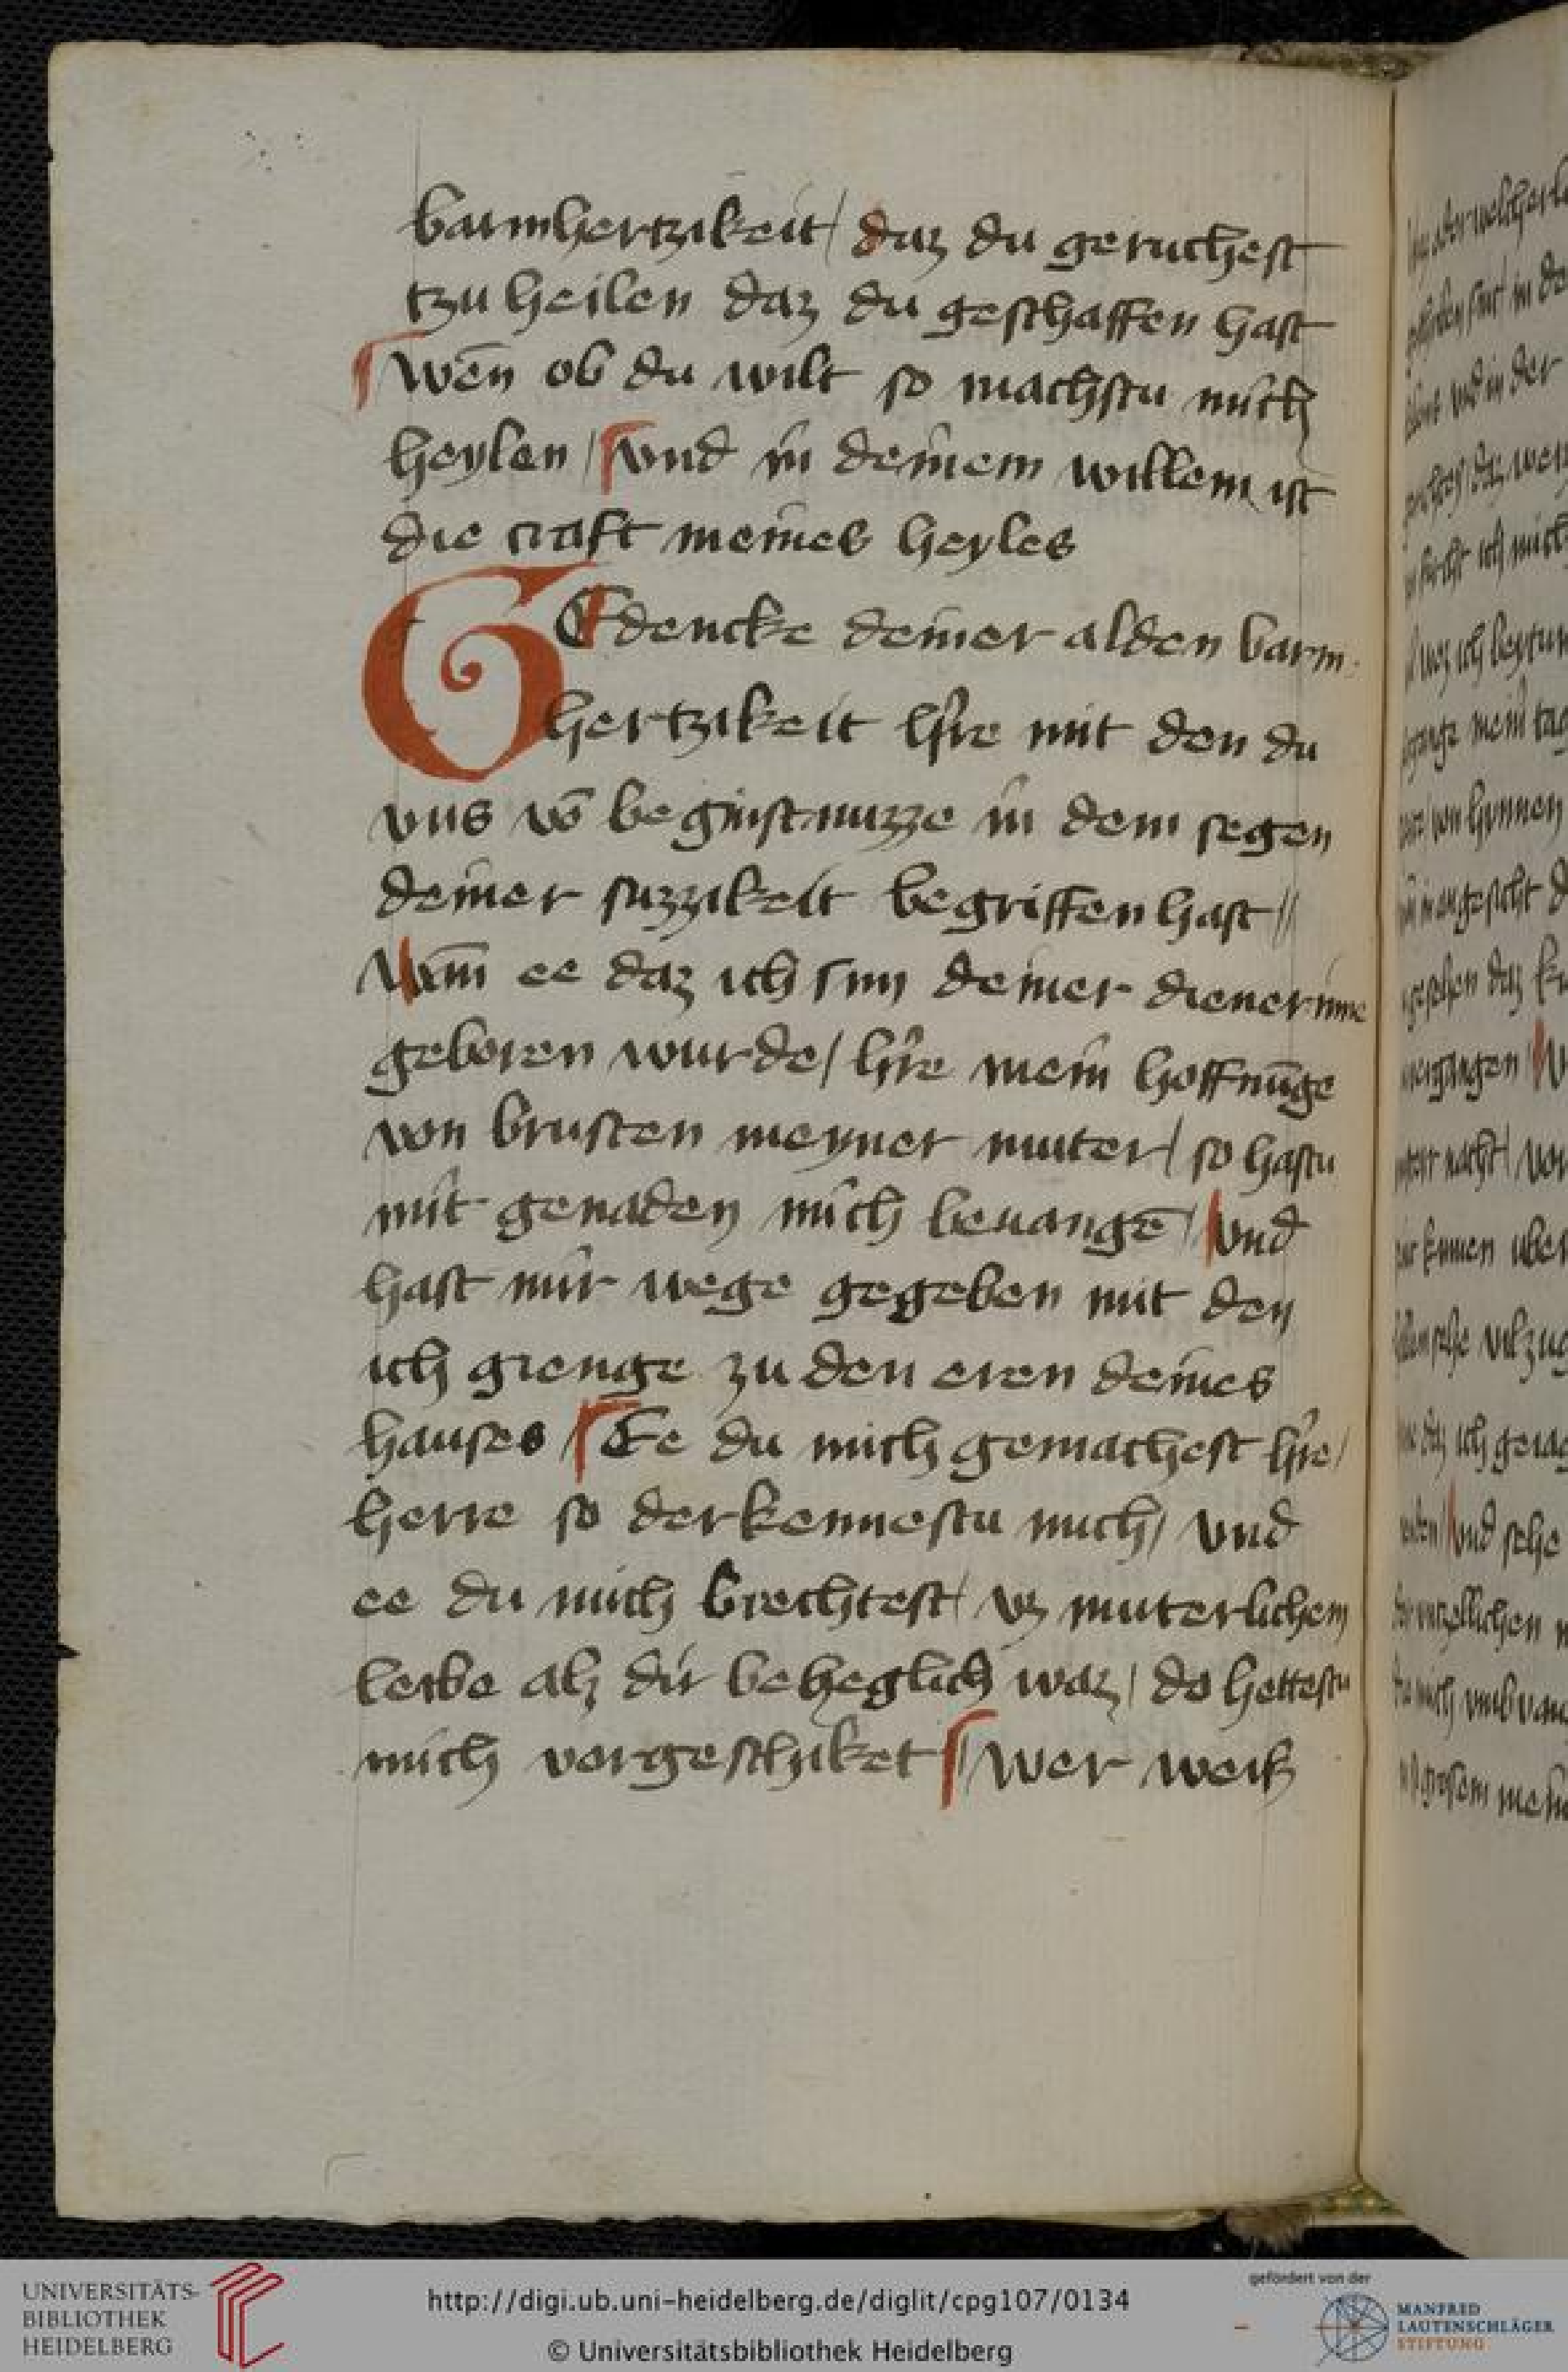 barmhertzikeit / daz du geruchest
tzu heilen daz du geschaffen hast
wen̄ ob du wilt so machstu mich
heylen / vnd in deinem willem ist
die craft meines heyles
GEdencke deiner alden barm
hertzikeit hr̄e mit den du
vns vō beginstnuzze in dem segen
deiner suzzikeit begriffen hast //
Wam̄ ee daz ich sun deiner dienerinne
geboren wurde / hr̄e mein hoffnūge
von brusten meyner muter / so hastu
mit genaden mich beuangē / vnd
hast mir wege gegeben mit den
ich gienge zu den eren deines
hauses / Ee du mich gemachest hr̄e /
herre so derkennestu mich / vnd
ee du mich brechtest / vz muterlichem
leibe alz dir beheglich waz / do hettestu
mich vorgeschiket // wer weiß
UNIVERSITÄTS-
BIBLIOTHEK
HEIDELBERG
http://digi.ub.uni-heidelberg.de/diglit/cpg107/0134
© Universitätsbibliothek Heidelberg
gefördert von der
MANFRED
LAUTENSCHLÄGER
STIFTUNG